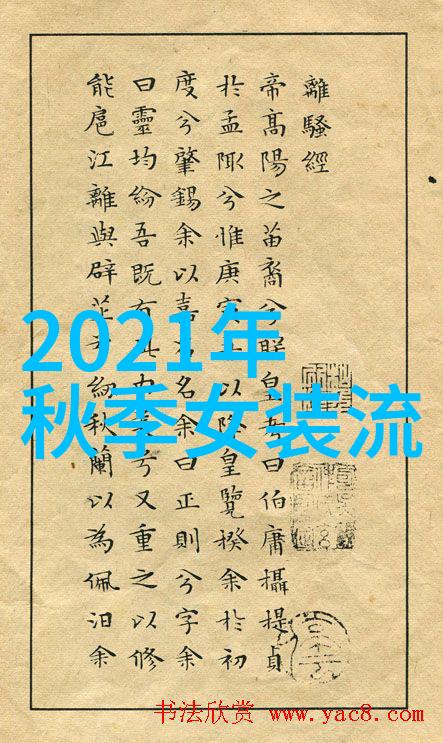 離騷經
帝高陽之苗裔兮朕皇考曰伯庸攝提貞
於孟陬兮惟庚寅以降皇覽揆余於初
度兮肇錫余以嘉名余曰正則兮字余
曰靈均紛吾既有此兮又重之以修
能扈江離與辟芷兮紉秋蘭以為佩汩余
2021年
秋季女装流
书法欣赏 www.yac8.com